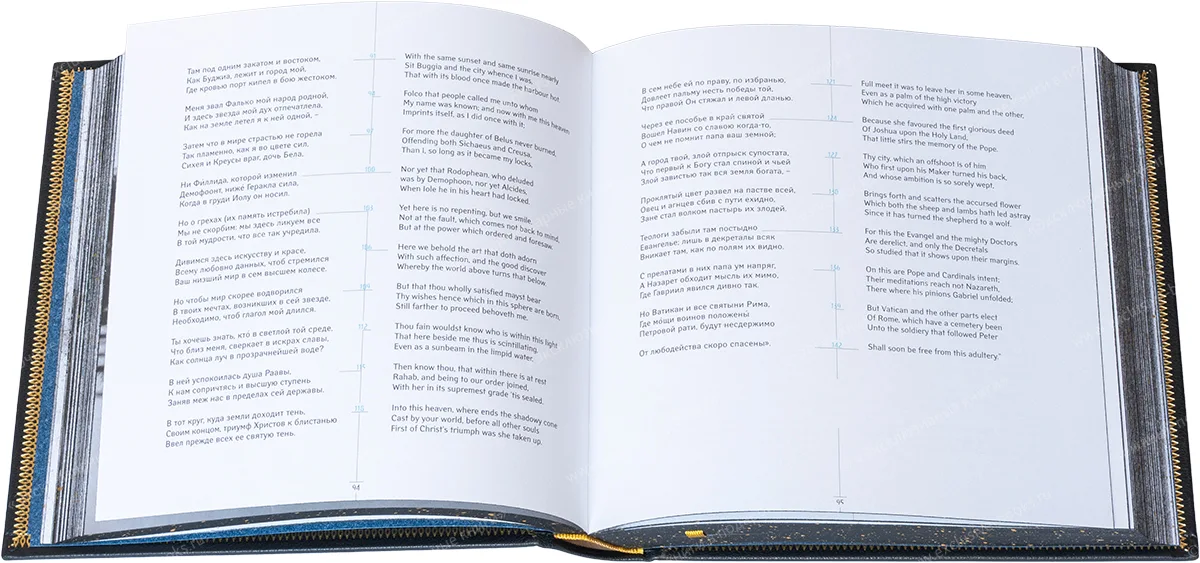 Там под одним закатом и востоком,
Как Буджиа, лежит и город мой,
Где кровью порт кипел в бою жестоком.
Меня звал Фалько мой народ родной,
И здесь звезда мой дух отпечатлела,
Как на земле летел я к ней одной, –
Затем что в мире страстью не горела
Так пламенно, как я во цвете сил,
Сихея и Креусы враг, дочь Бела,
Ни Филлида, которой изменил
Демофоонт, ниже Геракла сила,
Когда в груди Иолу он носил.
Но о грехах (их память истребила)
Мы не скорбим: мы здесь ликуем все
В той мудрости, что все так учредила.
Дивимся здесь искусству и красе,
Всему любовно данных, чтоб стремился
Ваш низший мир в сем высшем колесе.
Но чтобы мир скорее водворился
В твоих мечтах, возникших в сей звезде,
Необходимо, чтоб глагол мой длился.
Ты хочешь знать, кто в светлой той среде,
Что близ меня, сверкает в искрах славы,
Как солнца луч в прозрачнейшей воде?
В ней успокоилась душа Раавы,
К нам сопричтясь и высшую ступень
Заняв меж нас в пределах сей державы.
В тот круг, куда земли доходит тень,
Своим концом, триумф Христов к блистанью
Ввел прежде всех ее святую тень.
91
94
97
100
103
106
109
112
115
118
With the same sunset and same sunrise nearly
Sit Buggia and the city whence I was,
That with its blood once made the harbour hot.
Folco that people called me unto whom
My name was known; and now with me this heaven
Imprints itself, as I did once with it;
For more the daughter of Belus never burned,
Offending both Sichaeus and Creusa,
Than I, so long as it became my locks,
Nor yet that Rodophean, who deluded
was by Demophoon, nor yet Alcides,
When Iole he in his heart had locked.
Yet here is no repenting, but we smile,
Not at the fault, which comes not back to mind,
But at the power which ordered and foresaw.
Here we behold the art that doth adorn
With such affection, and the good discover
Whereby the world above turns that below.
But that thou wholly satisfied mayst bear
Thy wishes hence which in this sphere are born,
Still farther to proceed behoveth me.
Thou fain wouldst know who is within this light
That here beside me thus is scintillating,
Even as a sunbeam in the limpid water.
Then know thou, that within there is at rest
Rahab, and being to our order joined,
With her in its supremest grade 'tis sealed.
Into this heaven, where ends the shadowy cone
Cast by your world, before all other souls
First of Christ's triumph was she taken up.
94
В сем небе ей по праву, по избранью,
Довлеет пальму несть победы той,
Что правой Он стяжал и левой дланью.
Через ее пособье в край святой
Вошел Навин со славою когда-то,
О чем не помнит папа ваш земной;
А город твой, злой отпрыск супостата,
Что первый к Богу стал спиной и чьей
Злой завистью так вся земля богата, –
Проклятый цвет развел на пастве всей,
Овец и агнцев сбив с пути ехидно,
Зане стал волком пастырь их злодей.
Теологи забыли там постыдно
Евангелье; лишь в декреталы всяк
Вникает там, как по полям их видно.
С прелатами в них папа ум напряг,
А Назарет обходит мысль их мимо,
Где Гавриил явился дивно так.
Но Ватикан и все святыни Рима,
Где мо́щи воинов положены́
Петровой рати, будут несдержимо
От любодейства скоро спасены».
121
124
127
130
133
136
139
142
Full meet it was to leave her in some heaven,
Even as a palm of the high victory
Which he acquired with one palm and the other,
Because she favoured the first glorious deed
Of Joshua upon the Holy Land,
That little stirs the memory of the Pope.
Thy city, which an offshoot is of him
Who first upon his Maker turned his back,
And whose ambition is so sorely wept,
Brings forth and scatters the accursed flower
Which both the sheep and lambs hath led astray
Since it has turned the shepherd to a wolf.
For this the Evangel and the mighty Doctors
Are derelict, and only the Decretals
So studied that it shows upon their margins.
On this are Pope and Cardinals intent;
Their meditations reach not Nazareth,
There where his pinions Gabriel unfolded;
But Vatican and the other parts elect
Of Rome, which have a cemetery been
Unto the soldiery that followed Peter
Shall soon be free from this adultery."
95